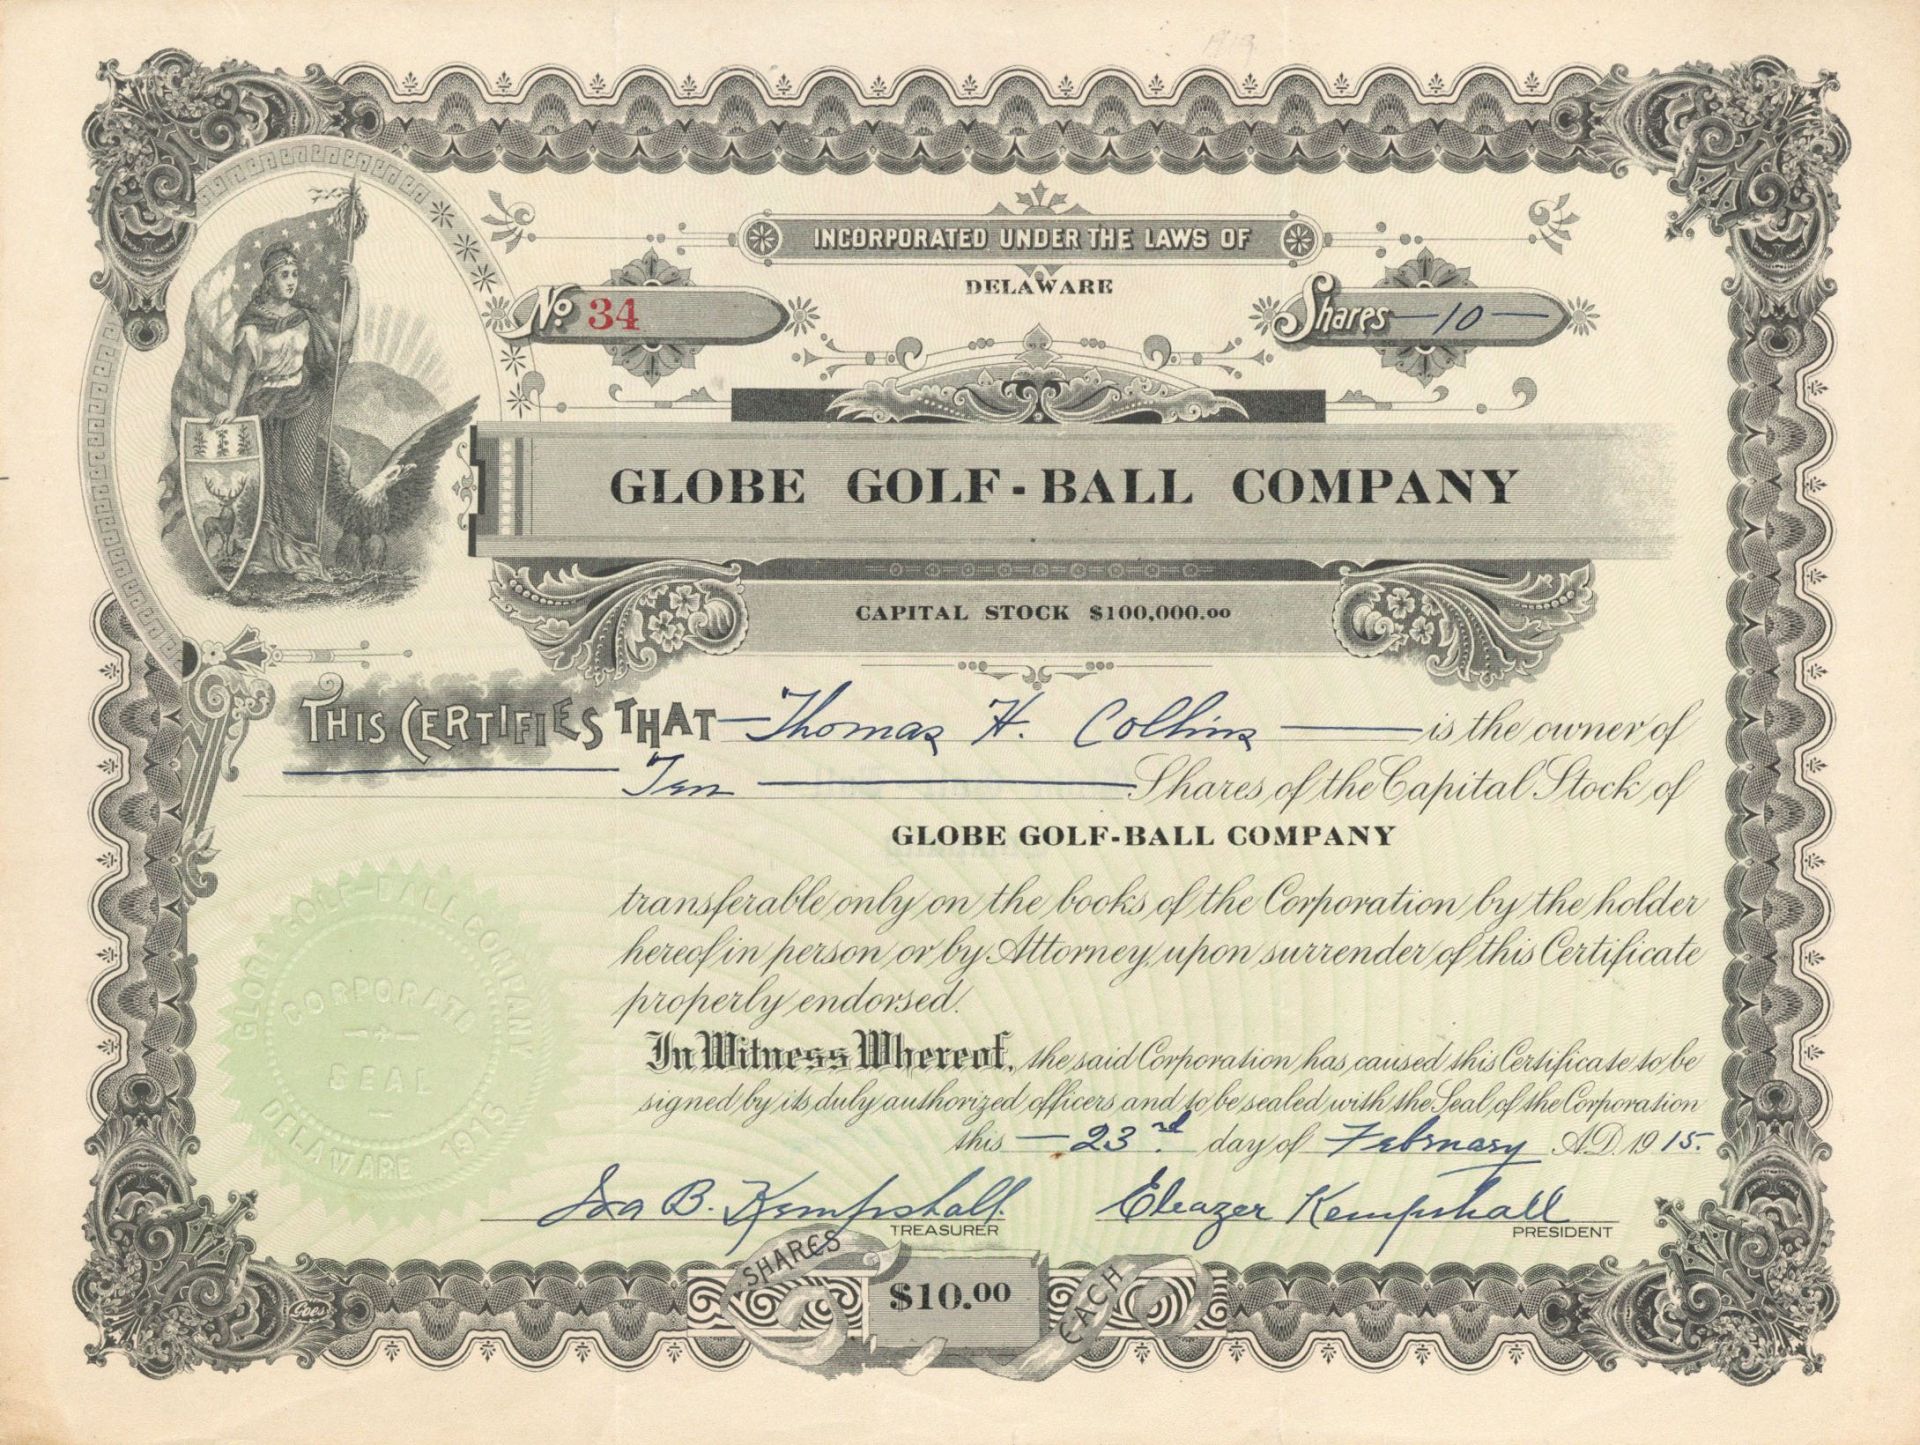 INCORPORATED UNDER THE LAWS OF
DELAWARE
No 34
Shares — 10 —
GLOBE GOLF-BALL COMPANY
CAPITAL STOCK $100,000.00
THIS CERTIFIES THAT — Thomas H. Collins — is the owner of
Ten — Shares of the Capital Stock of
GLOBE GOLF-BALL COMPANY
transferable only on the books of the Corporation by the holder
hereof in person or by Attorney, upon surrender of this Certificate
properly endorsed.
In Witness Whereof, the said Corporation has caused this Certificate to be
signed by its duly authorized officers and to be sealed with the Seal of the Corporation
this — 23rd day of February A.D. 1915.
GLOBE GOLF-BALL COMPANY
CORPORATE
SEAL
DELAWARE 1915
Ida B. Kempshall.
TREASURER
Eleazer Kempshall
PRESIDENT
SHARES
$10.00
EACH
Goes